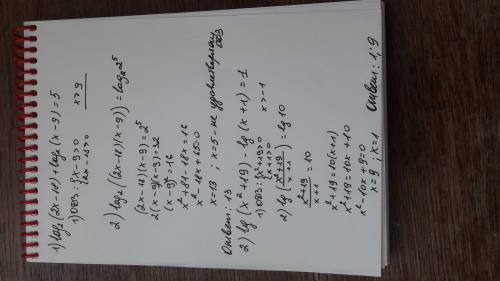 1) log₂(2x-18)+log₂(x-9)=5
1) ОДЗ: {x-9>0
{2x-18>0
x>9
2) log₂((2x-18)(x-9))=log₂2⁵
(2x-18)(x-9)=2⁵
2(x-9)(x-9)=32
(x-9)²=16
x²+81-18x=16
x²-18x+65=0
x=13 ; x=5 - не удовлетворяет ОДЗ
Ответ: 13
2) lg(x²+19)-lg(x+1)=1
1) ОДЗ: {x²+19>0
{x+1>0
x>-1
2) lg(x²+19/x+1)=lg10
x²+19/x+1=10
x²+19=10(x+1)
x²+19=10x+10
x²-10x+9=0
x=9 ; x=1
Ответ: 1; 9